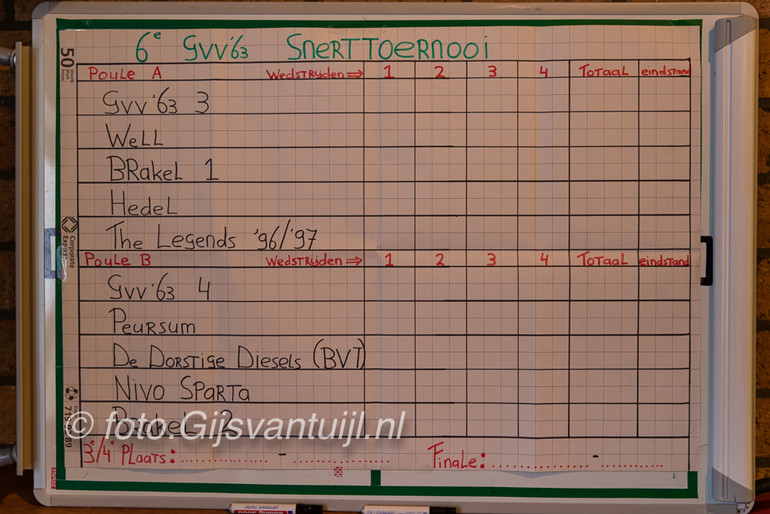 6e GVV'63 SNERTTOERNOOI
POULE A WEDSTRIJDEN ⇒ 1 2 3 4 TOTAAL eindstand
GVV '63 3
WeLL
BRakeL 1
HedeL
The Legends '96/'97
POULE B WEDSTRIJDEN ⇒ 1 2 3 4 TOTAAL eindstand
GVV '63 4
Peursum
De Dorstige Diesels (BVT)
Nivo Sparta
BRakeL 2
© foto.Gijsvantuijl.nl
3e/4e Plaats: ............ - ................
Finale: .............. - ............
50
Corporate Express